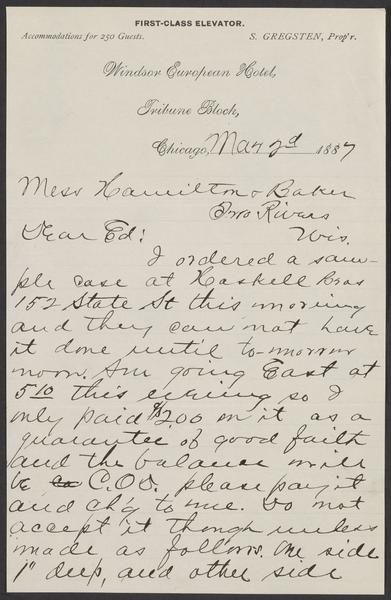 FIRST-CLASS ELEVATOR.
Accommodations for 250 Guests. S. GREGSTEN, Prop'r.
Windsor European Hotel,
Tribune Block,
Chicago, Mar 2d 1887
Mess Hamilton & Baker
Two Rivers
Wis.
Dear Ed:
I ordered a sam-
ple case at Haskell Bros
152 State St this morning
and they can not have
it done until to-morrow
noon. Am going East at
5 10 this evening so I
only paid $2 00 on it as a
guarantee of good faith
and the balance will
be C.O.D. please pay it
and ch'g to me. Do not
accept it though unless
made as follows. One side
1" deep, and other side